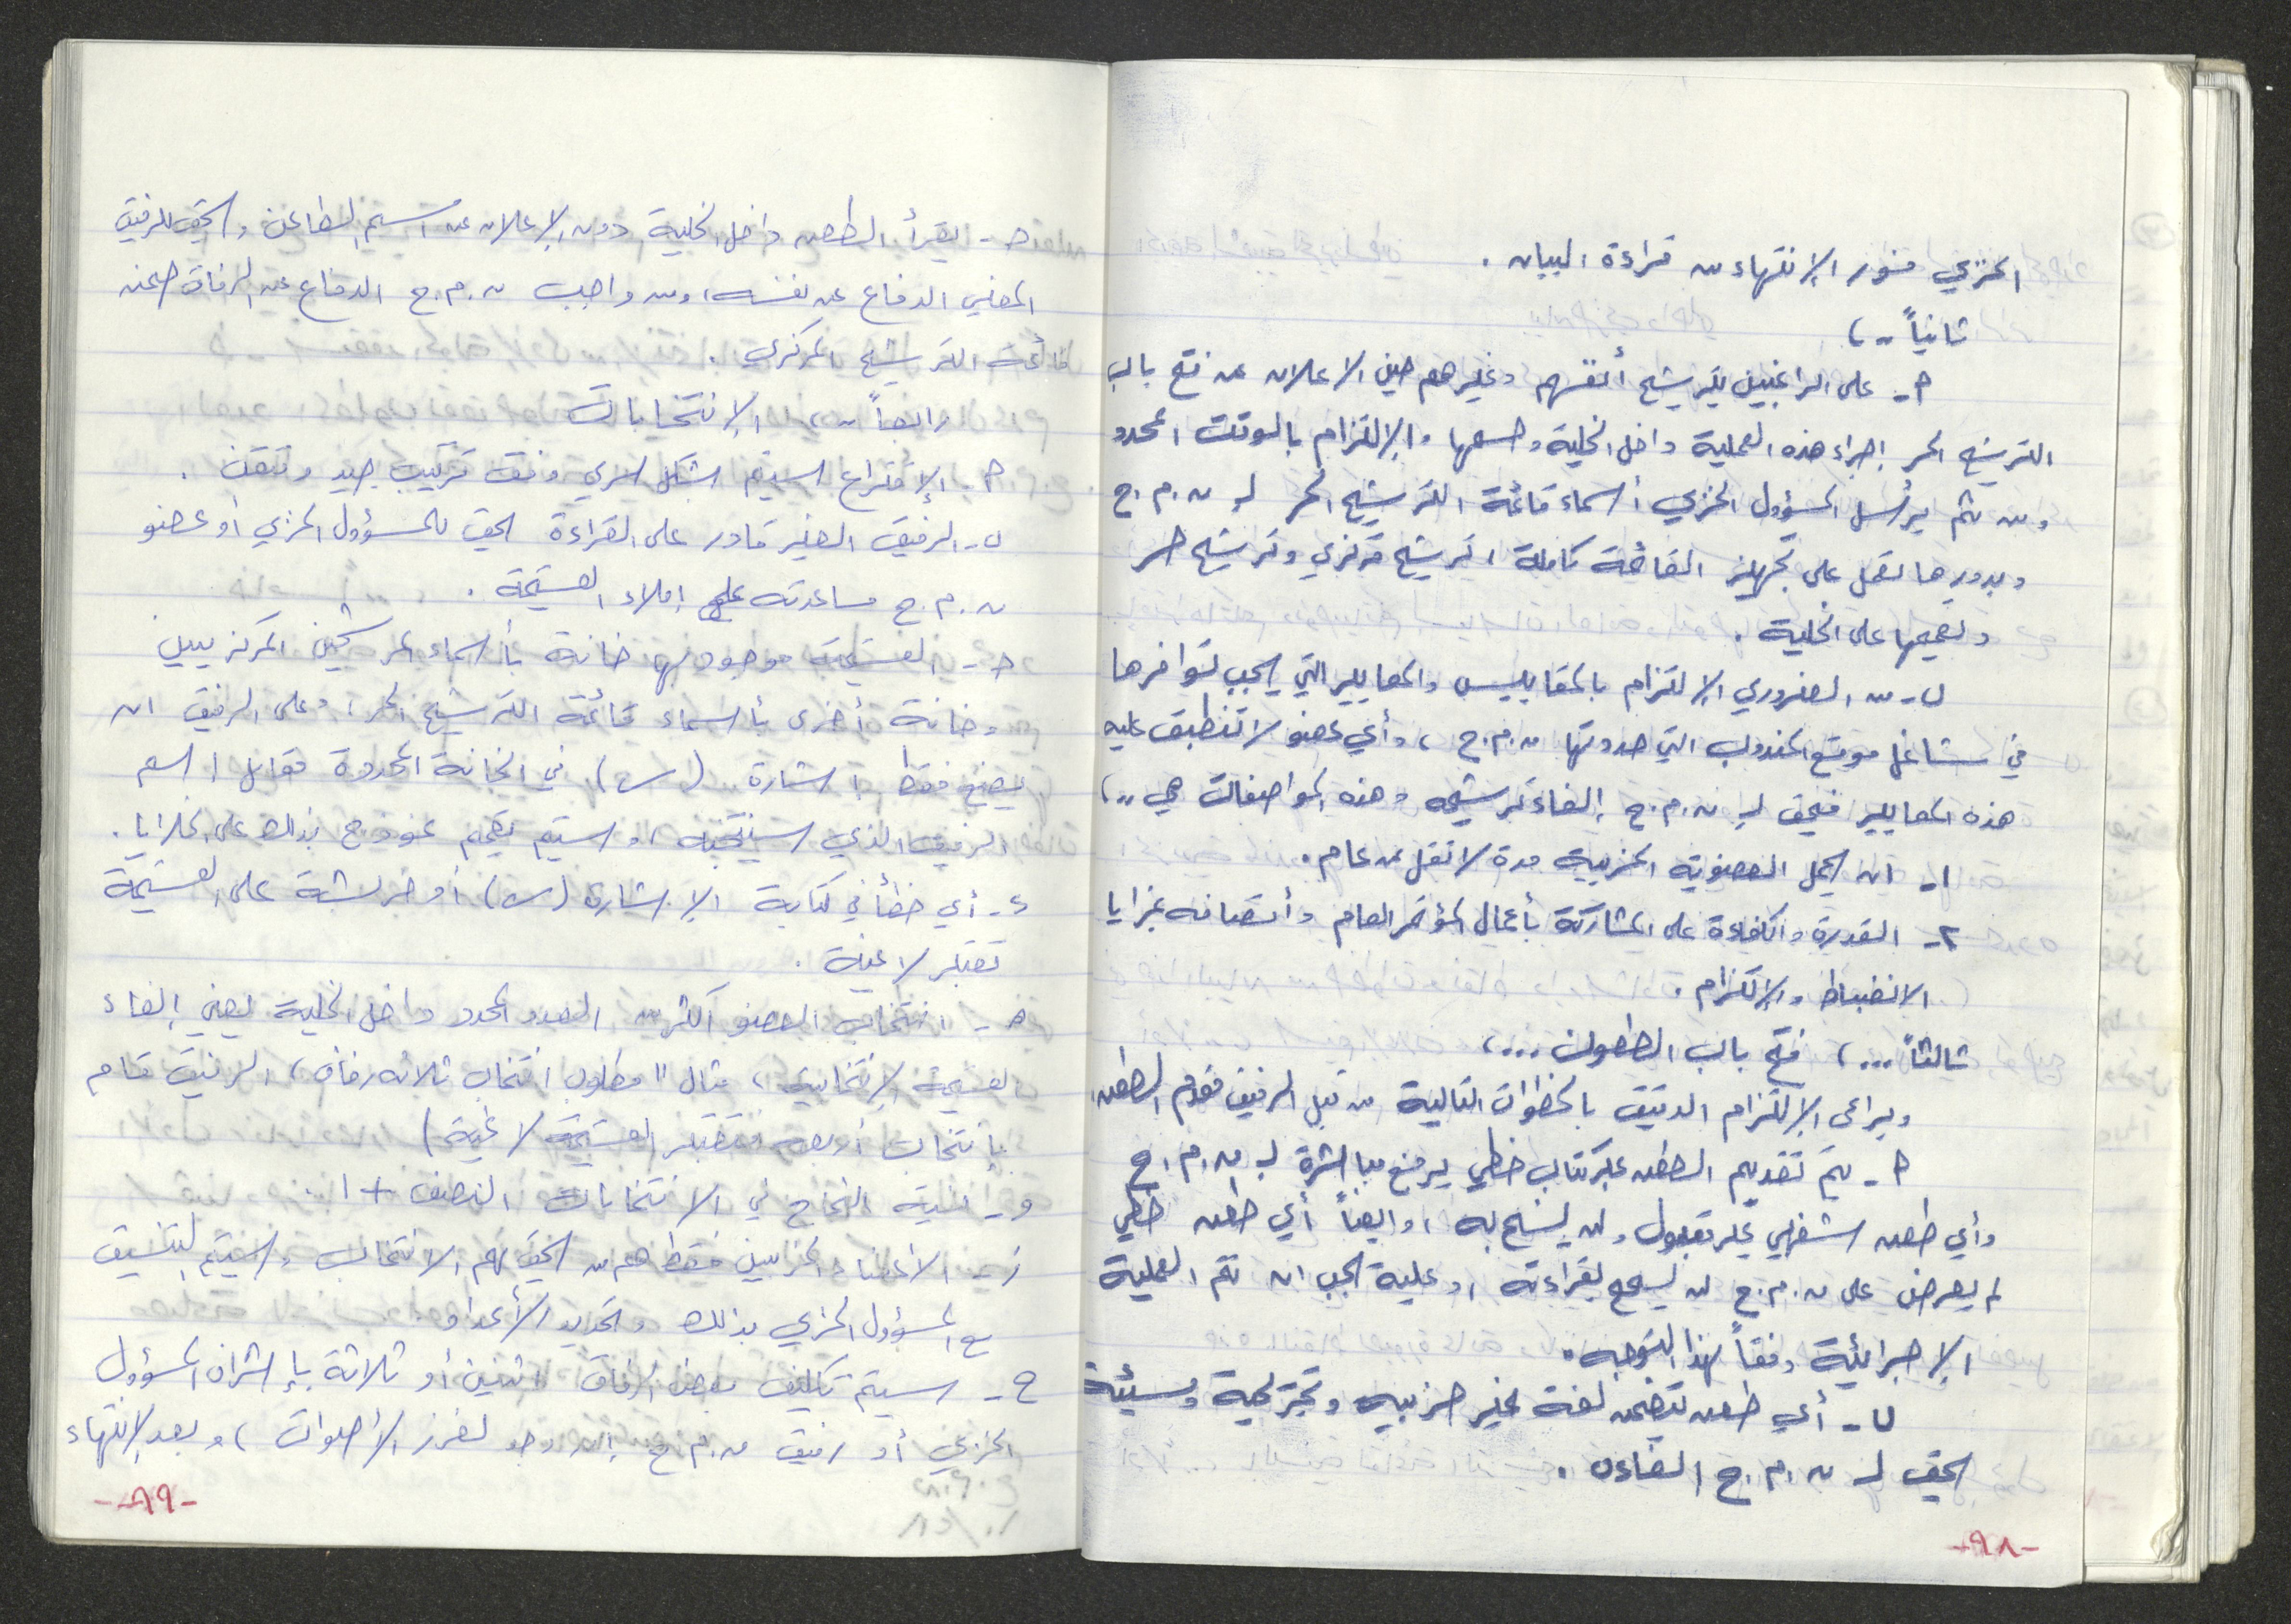 الحزبي فور الإنتهاء من قراءة البيان .
ثانياً ..،
أ- على الراغبين بترشيح أنفسهم وغيرهم حين الاعلان عن فتح باب
الترشيح الحر إجراء هذه العملية داخل الخلية وحسمها والإلتزام بالوقت المحدد
ومن ثم يرسل المسؤول الحزبي أسماء قائمة الترشيح الحر لـ ن.م.ج
وبدورها تعمل على تجهيز القائمة كاملة ا ترشيح مركزي وترشيح حر
وتعميمها على الخلية .
ب- من الضروري الإلتزام بالمقاييس والمعايير التي يجب توافرها
في شاغل موقع المندوب التي حددتها ن.م.ج ، وأي عضو لا تنطبق عليه
هذه المعايير فيحق لـ ن.م.ج إلغاء ترشيحه وهذه المواصفات هي ..،
١- ان يحمل العضوية الحزبية مدة لا تقل عن عام .
٢- القدرة والكفاءة على المشاركة بأعمال المؤتمر العام وأتصافه بمزايا
الانضباط والإلتزام .
ثالثاً ...، فتح باب الطعون ...،
ويراعى الإلتزام الدقيق بالخطوات التالية من قبل الرفيق مقدم الطعن،
أ- يتم تقديم الطعن عبر كتاب خطي يرفع مباشرة لـ ن.م.ج
وأي طعن شفهي غير مقبول ولن يسمح به ، وايضاً أي طعن خطي
لم يعرض على ن.م.ج لن يسمح بقراءته ، وعليه يجب ان تتم العملية
الإجرائية وفقاً لهذا التوجه .
ب- أي طعن يتضمن لغة غير حزبيه وتجريحية ومسيئة
يحق لـ ن.م.ج إلغاءه .
-٩٨-
جـ- يقرأ الطعن داخل الخلية دون الإعلان عن اسم الطاعن ويحق للرفيق
المعني الدفاع عن نفسه، ومن واجب ن.م.ج الدفاع عن الرفاق ضمن
قائمة الترشيح المركزي .
رابعاً ..، الإنتخابات
أ- الإقتراع سيتم بشكل سري وفق ترتيب جيد ومتقن .
ب- الرفيق الغير قادر على القراءة يحق للمسؤول الحزبي أو عضو
ن.م.ج مساعدته على إملاء القسيمة .
جـ- القسيمة موجود بها خانة بأسماء المرشحين المركزيين
وخانة أخرى بأسماء قائمة الترشيح الحر ، وعلى الرفيق ان
يضع فقط اشارة (س) في الخانة المحددة مقابل اسم
الرفيق الذي سينتخبه ، وسيتم تعميم نموذج بذلك على الخلايا .
د- أي خطأ في كتابة الإشارة (س) أو خربشة على القسيمة
تعتبر لاغية .
هـ- انتخاب العضو أكثر من العدد المحدد داخل الخلية يعني إلغاء
القسيمة الإنتخابية ، مثال " مطلوب انتخاب ثلاثه رفاق ، الرفيق قام
بإنتخاب أربعه فتعتبر القسيمة لاغية )
و- نسبة النجاح في الانتخابات النصف + ١ .
ز- الأعضاء الحزبيين فقط هم من يحق لهم الانتخاب وسيتم التنسيق
مع المسؤول الحزبي بذلك وتحديد الأعداد .
ح- سيتم تكليف بعض الرفاق اثنين أو ثلاثة بإشراف المسؤول
الحزبي أو رفيق ن.م.ج إن وجد لفرز الأصوات ، وبعد الإنتهاء
-٩٩-